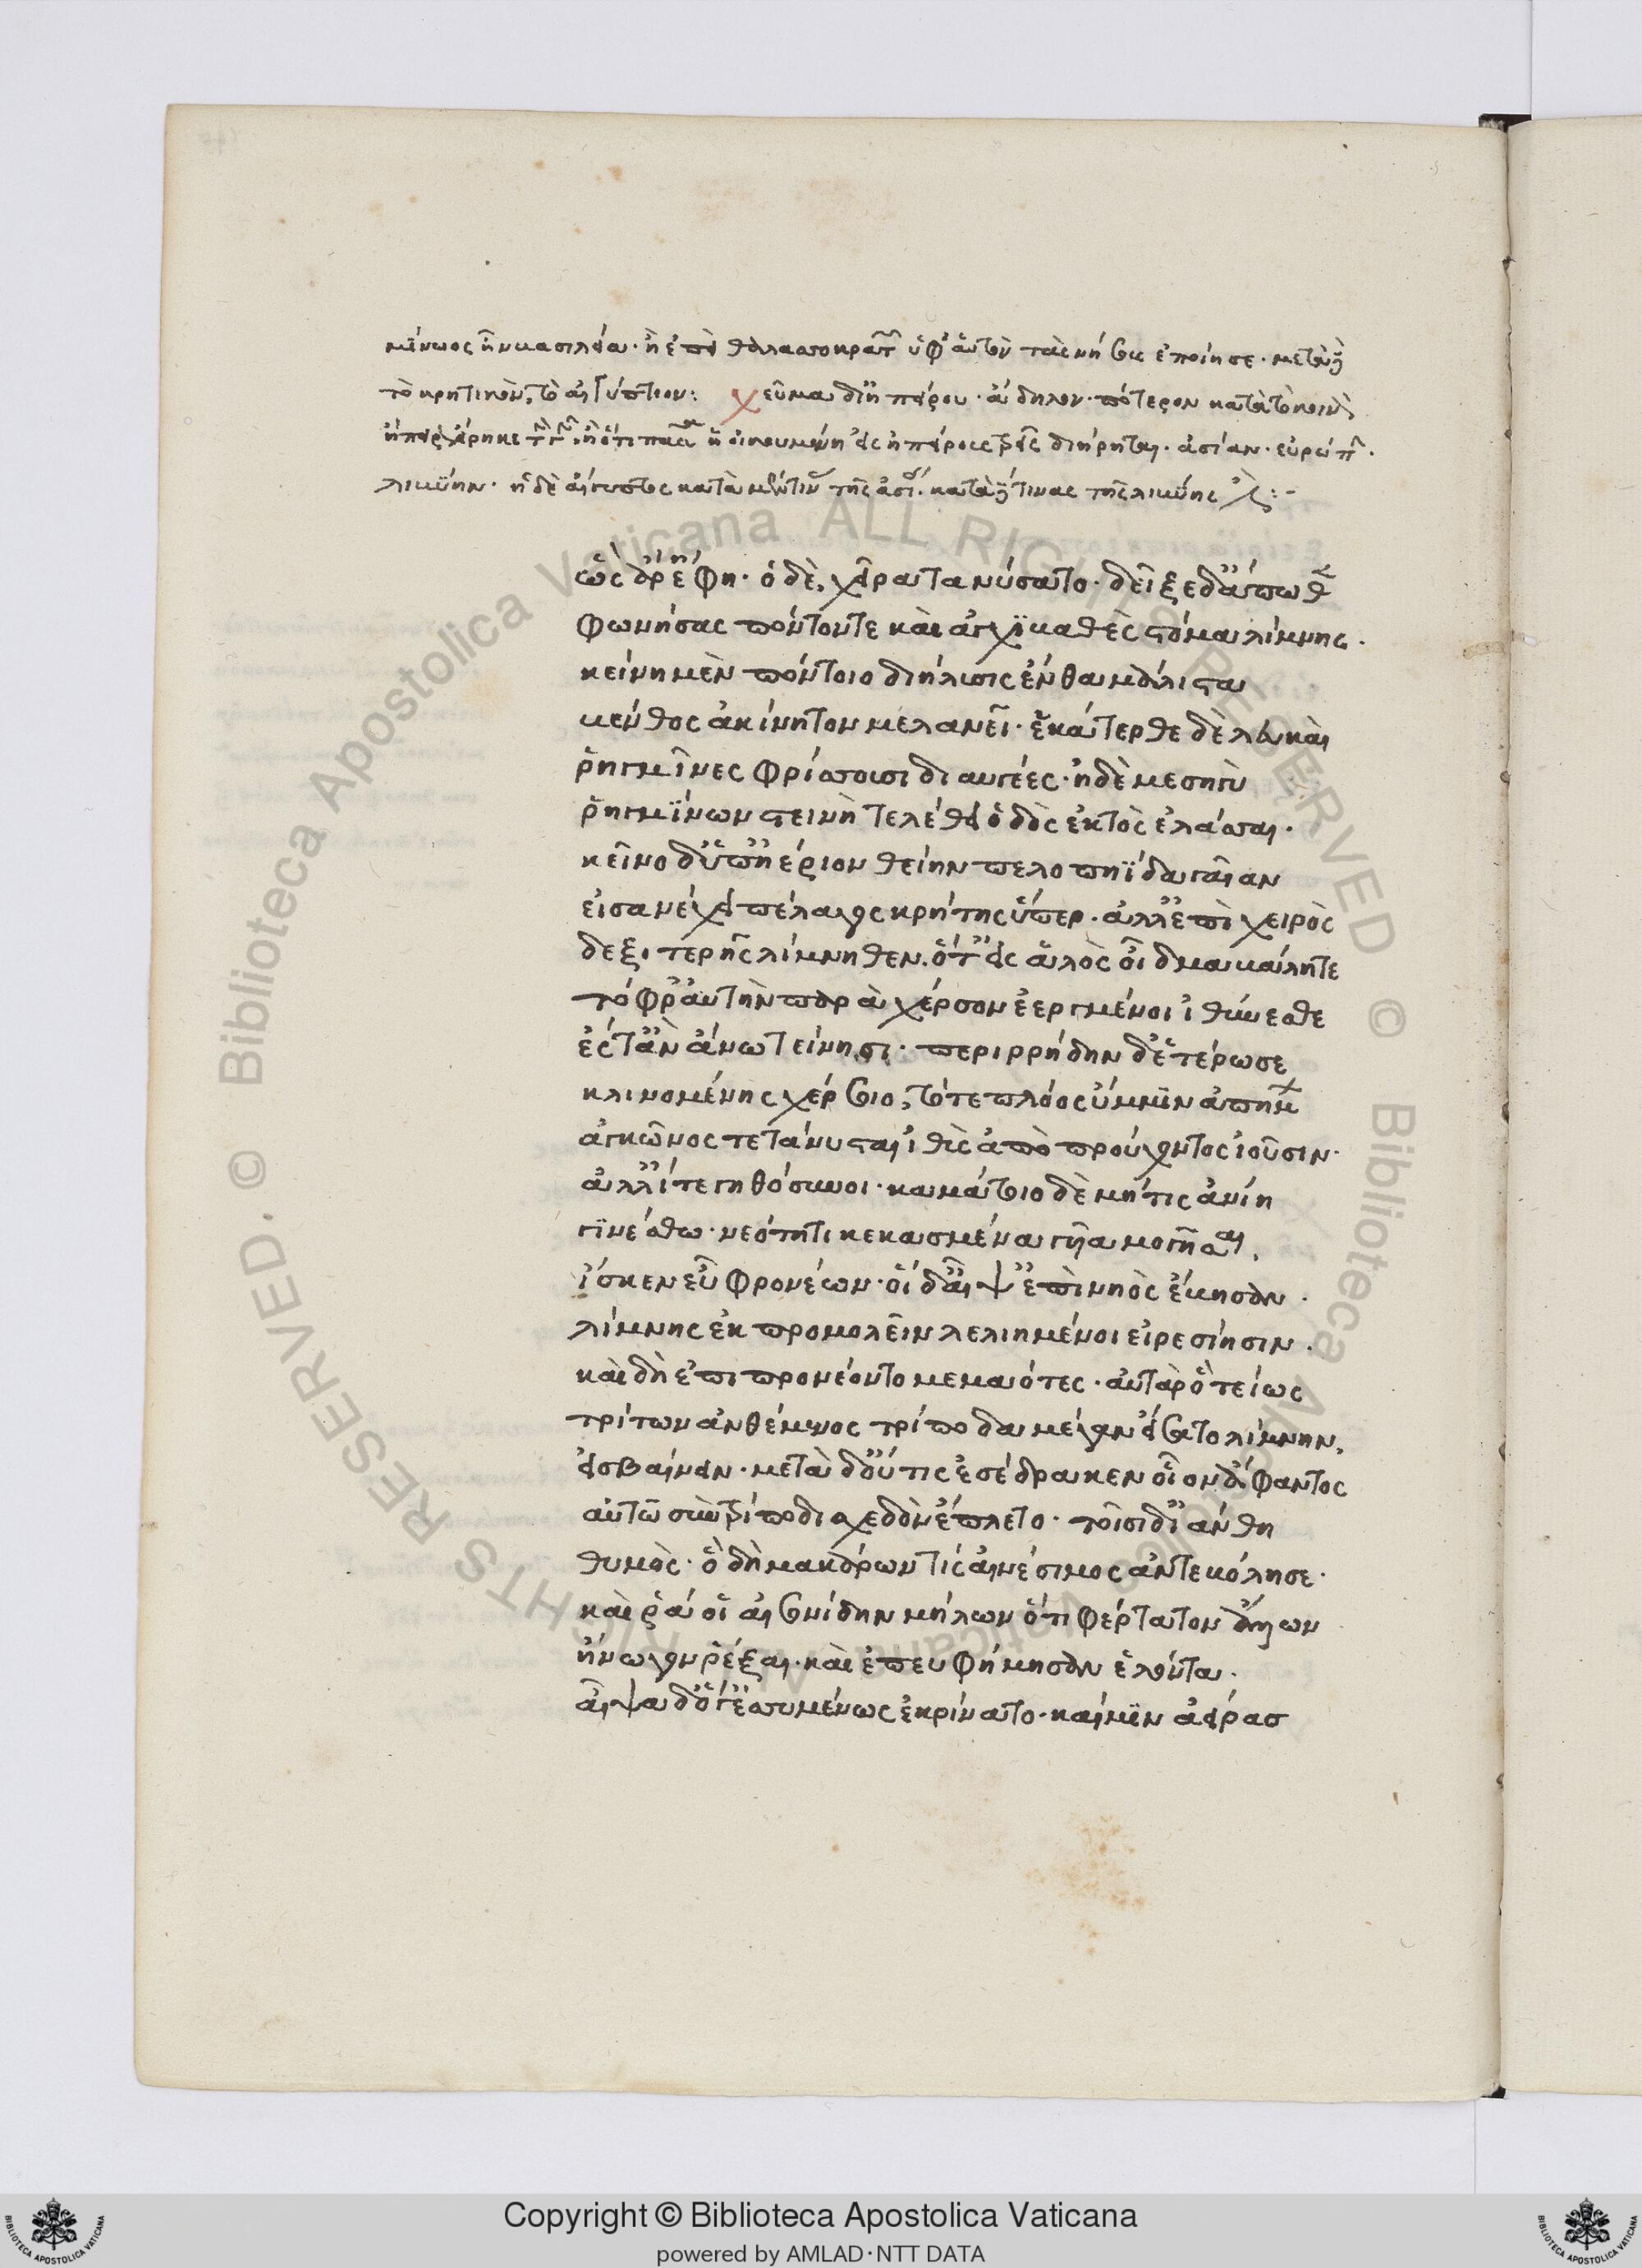 μίνωος ἦν βασιλέα. ἢ ἐπεὶ θαλασσοκρατ ὑφ' ἑαυτὸν τὰς νήσους ἐποίησε. μεταξὺ
τὸ κρητικὸν, τὸ αἰγύπτιον: χεῦμα δ' ἠπείρου. ἄδηλον πότερον κατὰ τὸ κοινὸν
ἤπειρον εἴρηκε τὴν γῆν. ἢ ὅτι πᾶσα ἡ οἰκουμένη εἰς ἠπείρους τρεῖς διήρηται. ἀσίαν. εὐρώπην.
λιβύην. ἡ δὲ αἴγυπτος κατὰ μέν τινας τῆς ἀσίας. κατὰ δέ τινας τῆς λιβύης
ὣς ἄρ' ἔφη. ὁ δὲ, χεῖρα τανύσατο. δεῖξε δ' ἄπωθεν
φωνήσας πόντον τε καὶ ἀγχιβαθὲς στόμα λίμνης.
κείνη μὲν πόντοιο διήλυσις ἔνθα μάλιστα
βένθος ἀκίνητον μελανεῖ. ἑκάτερθε δὲ λευκαὶ
ῥηγμῖνες φρίσσουσι διαυγέες. ἡ δὲ μεσηγὺ
ῥηγμίνων στεινὴ τελέθει ὁδὸς ἐκτὸς ἐλάσσαι.
κεῖνο δ' ὑπηέριον θείην πελοπηίδα γαῖαν
εἰσανέχει πέλαγος κρήτης ὕπερ. ἀλλ' ἐπὶ χειρὸς
δεξιτερῆς λίμνηθεν. ὅτ' εἰς ἁλὸς οἶδμα βάλητε
τόφρ' αὐτὴν παρὰ χέρσον ἐεργμένοι ἰθύνεσθε
ἔστ' ἂν ἄνω τείνησι. περιρρήδην δ' ἑτέρωσε
κλινομένης χέρσοιο, τότε πλόος ὔμμιν ἀπήμων
ἀγκῶνος τετάνυσται ἰθὺς ἀπὸ προύχοντος ἰοῦσιν.
ἀλλ' ἴτε γηθόσυνοι. καμάτοιο δὲ μήτις ἀνίη
γινέσθω. νεότητι κεκασμένα γυῖα μογῆσαι,
ἴσκεν ἐῢ φρονέων. οἱ δ' αἶψ' ἐπὶ νηὸς ἔβησαν.
λίμνης ἐκπρομολεῖν λελιημένοι εἰρεσίησιν.
καὶ δὴ ἐπιπρονέοντο μεμαότες. αὐτὰρ ὅ τείως
τρίτων ἀνθέμενος τρίποδα μέγαν εἴσατο λίμνην,
εἰσβαίνειν. μετὰ δ' οὔτις ἐσέδρακεν οἷον ἄφαντος
αὐτῶ σὺν τρίποδι σχεδὸν ἔπλετο. τοῖσι δ' ἰάνθη
θυμὸς. ὃ δὴ μακάρων τίς ἐναίσιμος ἀντεβόλησε.
καί ῥά οἱ αἰσονίδην μήλων ὅτι φέρτατον ἄλλων
ἤνωγον ῥέξαι. καὶ ἐπευφήμησαν ἑλόντα.
αἶψα δ' ὅγ' ἐσσυμένως ἐκρίνατο. καί μιν ἀείρας